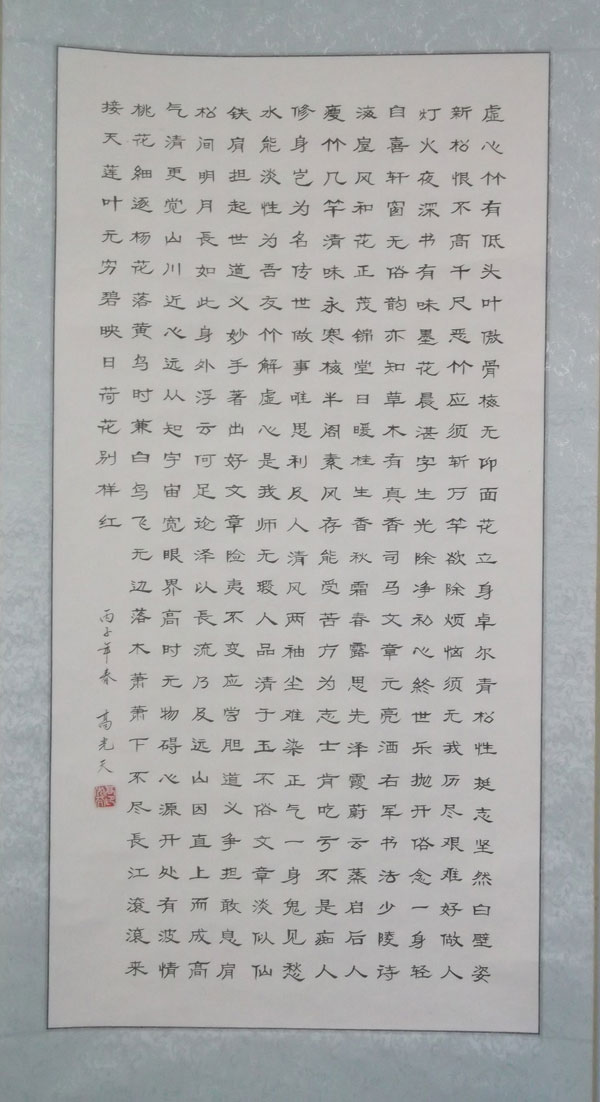 虚心竹有低头叶傲骨梅无仰面花立身卓尔青松性挺志坚然白璧姿
新松恨不高千尺恶竹应须斩万竿欲除烦恼须无我历尽艰难好做人
灯火夜深书有味墨花晨湛字生光除净私心終世乐抛开俗念一身轻
自喜轩窗无俗韵亦知草木有真香司马文章元亮酒右军书法少陵诗
海屋风和花正茂锦堂日暖桂生香秋霜春露思先泽霞蔚云蒸启后人
瘦竹几竿清味永寒梅半阁素风存能受苦方为志士肯吃亏不是痴人
修身岂为名传世做事唯思利及人清风两袖尘难染正气一身鬼见愁
水能淡性为吾友竹解虚心是我师无瑕人品清于玉不俗文章淡似仙
铁肩担起世道义妙手著出好文章险夷不变应尝胆道义争担敢息肩
松间明月長如此身外浮云何足论泽以長流乃及远山因直上而成高
气清更觉山川近心远从知宇宙宽眼界高时无物碍心源开处有波情
桃花细逐杨花落黄鸟时兼白鸟飞无边落木萧萧下不尽長江滚滚来
接天莲叶无穷碧映日荷花别样红
丙子年春 高光天